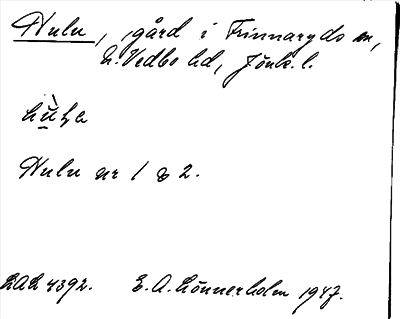 Hulu, gård i Frinnaryds sn,
N. Vedbo hd, Jönk. l.
Hulu nr 1 & 2.
LAL 4392. E. A. Lönnerholm 1947.